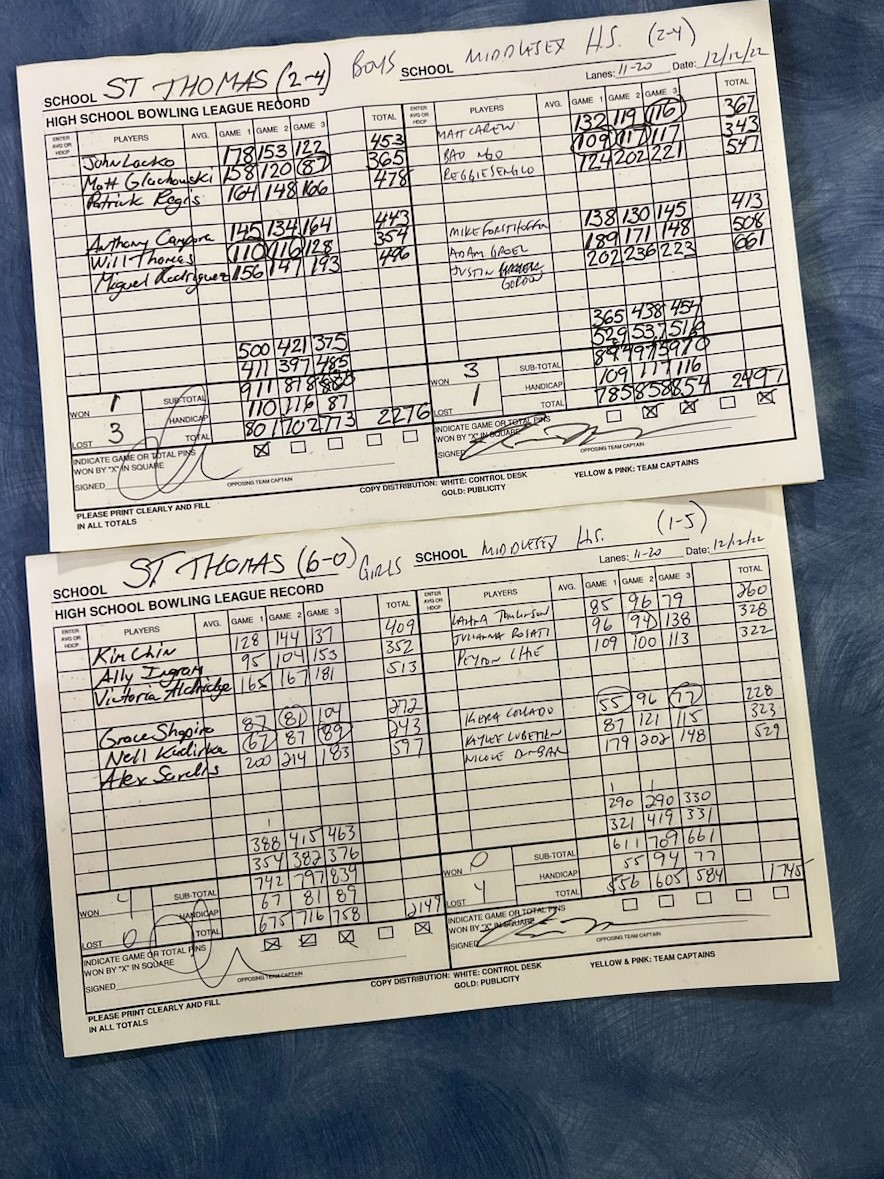 SCHOOL ST THOMAS (2-4) BOYS SCHOOL MIDDLESEX H.S. (2-4)
Lanes: 11-20 Date: 12/12/22
HIGH SCHOOL BOWLING LEAGUE RECORD
ENTER AVG OR HDCP PLAYERS AVG. GAME 1 GAME 2 GAME 3 TOTAL
John Lacko 178 153 122 453
Matt Glachowski 158 120 87 365
Patrick Regis 164 148 166 478
Anthony Campora 145 134 164 443
Will Thomas 110 116 128 354
Miguel Rodriguez 156 147 193 496
500 421 375
411 397 485
911 818
WON 1 SUB-TOTAL
110 116 87
LOST 3 HANDICAP
TOTAL 801 702 773 2276
INDICATE GAME OR TOTAL PINS
WON BY "X" IN SQUARE
SIGNED
OPPOSING TEAM CAPTAIN
ENTER AVG OR HDCP PLAYERS AVG. GAME 1 GAME 2 GAME 3 TOTAL
MATT CAREW 132 119 116 367
BAO NGO 109 117 117 343
124 202 221 547
138 130 145 413
ADAM 189 171 148 508
JUSTIN 202 236 223 661
365 438 454
529 537 516
894 975 970
WON 3 SUB-TOTAL
109 117 116
LOST 1 HANDICAP
TOTAL 785 858 854 2497
INDICATE GAME OR TOTAL PINS
WON BY "X" IN SQUARE
SIGNED
OPPOSING TEAM CAPTAIN
PLEASE PRINT CLEARLY AND FILL
IN ALL TOTALS
COPY DISTRIBUTION: WHITE: CONTROL DESK
GOLD: PUBLICITY
YELLOW & PINK: TEAM CAPTAINS
SCHOOL ST THOMAS (6-0) GIRLS SCHOOL MIDDLESEX H.S. (1-5)
Lanes: 11-20 Date: 12/12/22
HIGH SCHOOL BOWLING LEAGUE RECORD
ENTER AVG OR HDCP PLAYERS AVG. GAME 1 GAME 2 GAME 3 TOTAL
Kim Chin 128 144 137 409
Ally Ingram 95 104 153 352
Victoria Aldridge 165 167 181 513
Grace Shapiro 87 81 104 272
Nell Kudirka 67 87 89 243
Alex Sarelis 200 214 183 597
388 415 463
354 382 376
742 797 839
WON 4 SUB-TOTAL
67 81 89
LOST 0 HANDICAP
TOTAL 675 716 758 2149
INDICATE GAME OR TOTAL PINS
WON BY "X" IN SQUARE
SIGNED
OPPOSING TEAM CAPTAIN
ENTER AVG OR HDCP PLAYERS AVG. GAME 1 GAME 2 GAME 3 TOTAL
TOMLINSON 85 96 79 260
JULIANNA ROSATI 96 94 138 328
PEYTON 109 100 113 322
KIERA COLLADO 55 96 77 228
KAYLEE 87 121 115 323
NICOLE DUNBAR 179 202 148 529
290 290 330
321 419 331
611 709 661
WON 0 SUB-TOTAL
55 94 77
LOST 4 HANDICAP
TOTAL 556 605 584 1745
INDICATE GAME OR TOTAL PINS
WON BY "X" IN SQUARE
SIGNED
OPPOSING TEAM CAPTAIN
PLEASE PRINT CLEARLY AND FILL
IN ALL TOTALS
COPY DISTRIBUTION: WHITE: CONTROL DESK
GOLD: PUBLICITY
YELLOW & PINK: TEAM CAPTAINS